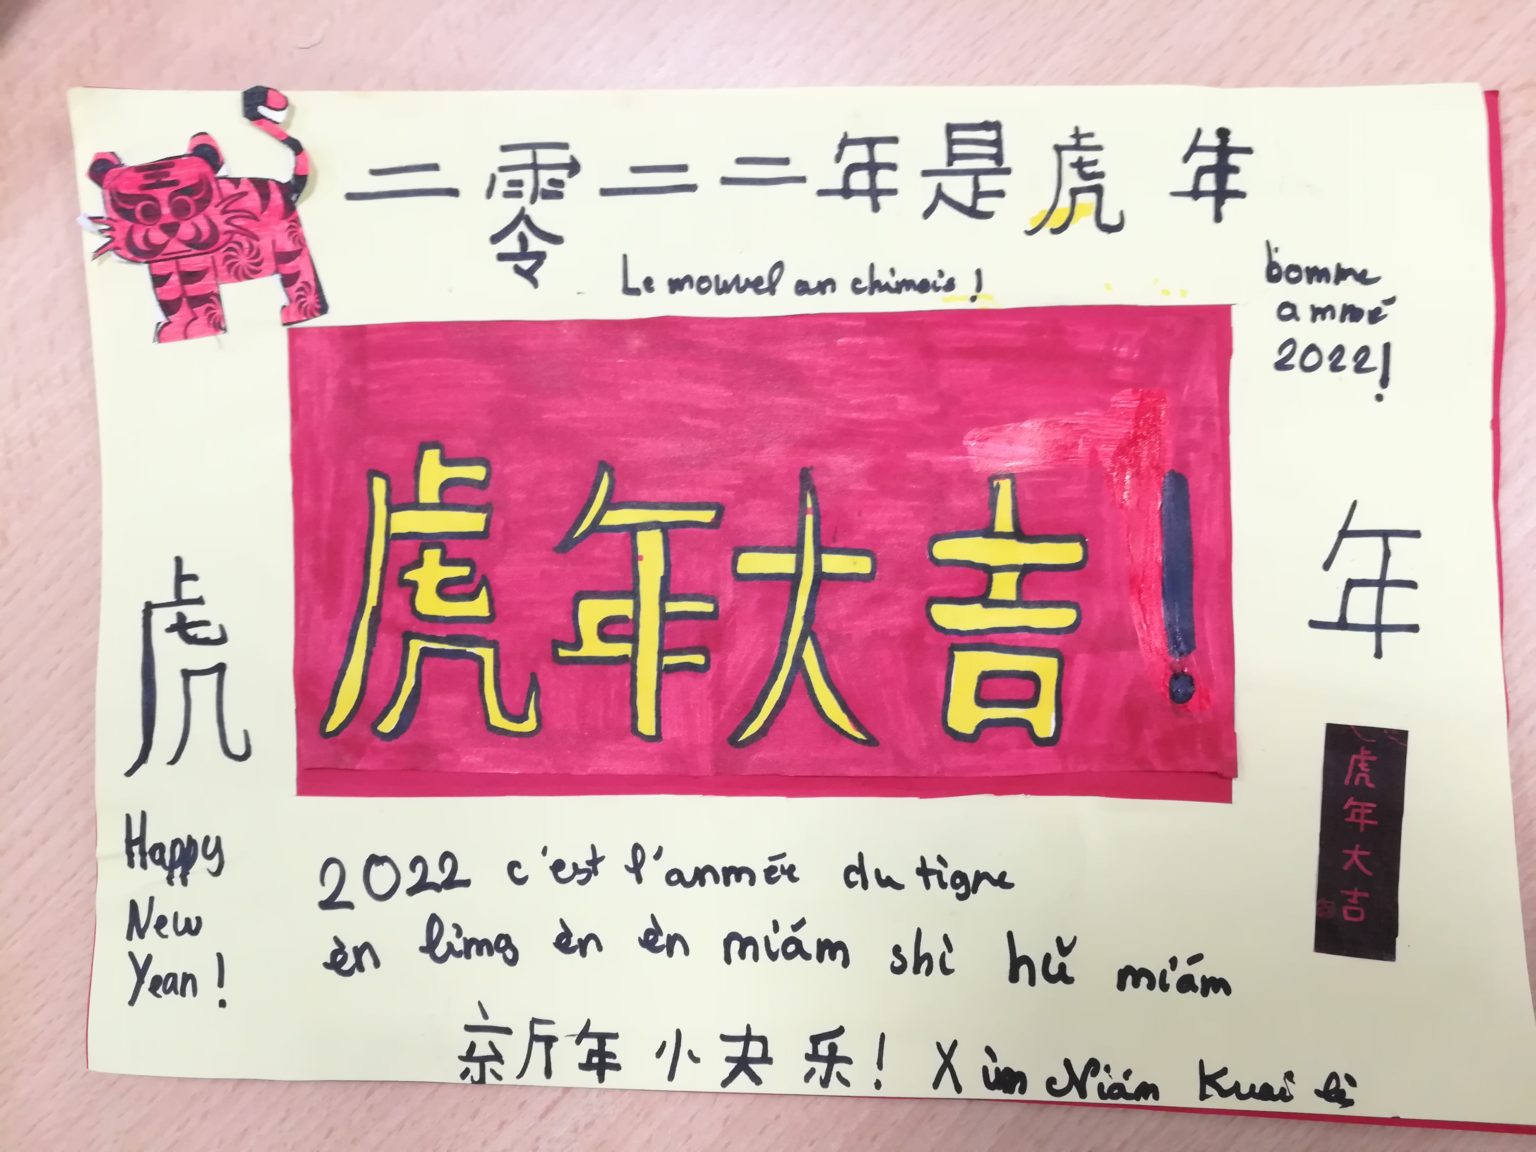 二零二二年是虎年
Le mouvel an chimois !
bomme
ammé
2022!
虎年大吉!
虎
年
虎年大吉
Happy
New
Year !
2022 c'est l'anmée du tigre
èn limg èn èn miám shì hǔ miám
新年快乐! Xim Niám Kuai lè